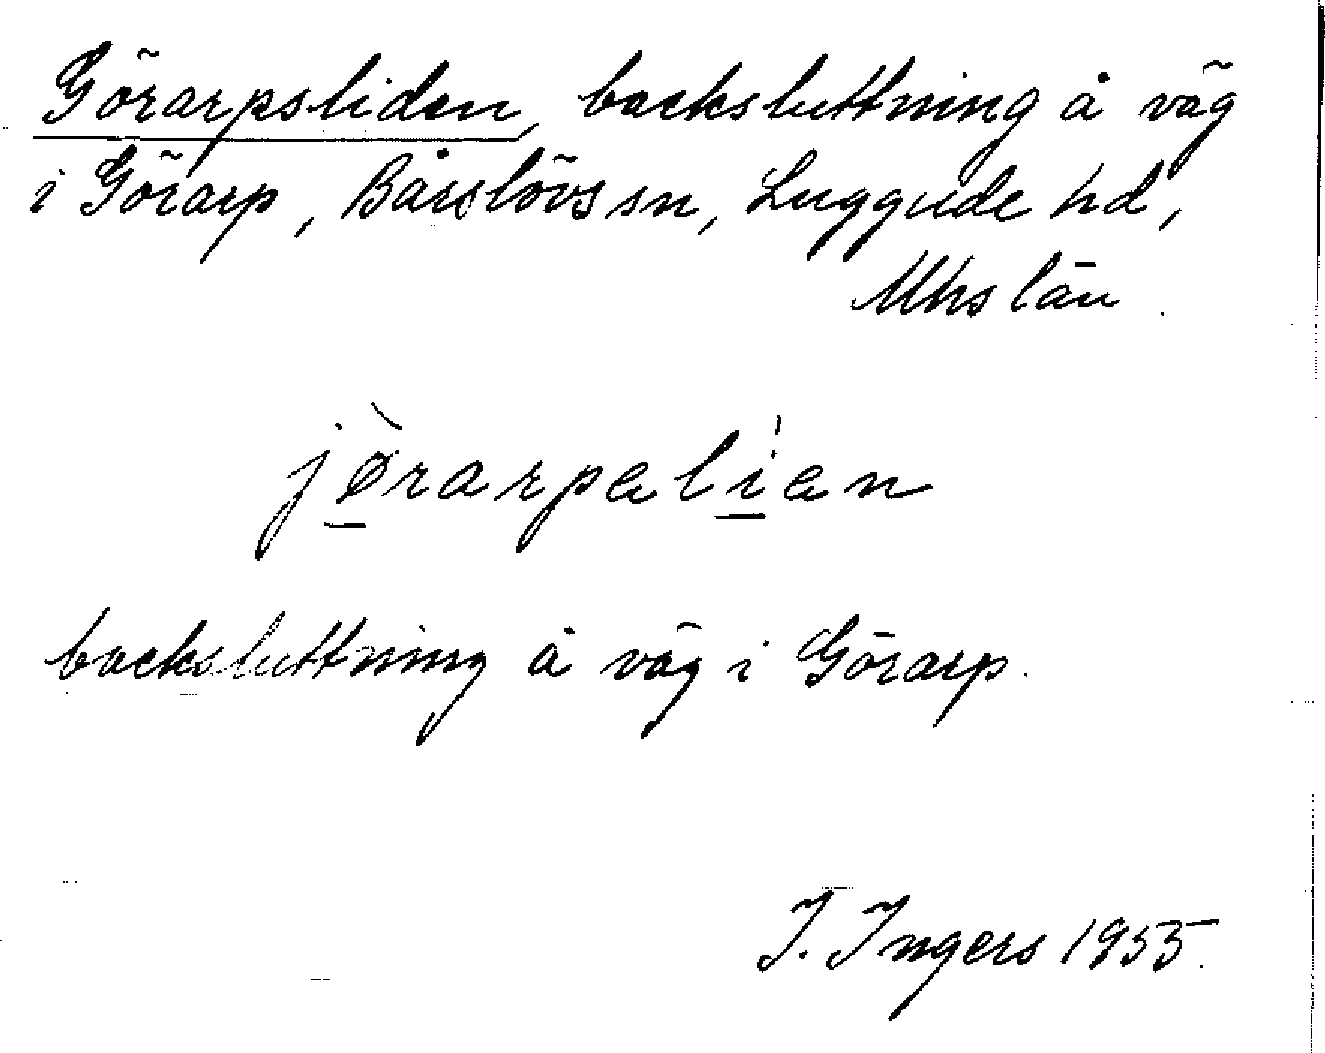 Görarpsliden, backsluttning å väg
i Görarp, Bårslövs sn, Luggude hd,
Mhs län.
jø̀rarpəlíən
backsluttning å väg i Görarp.
I. Ingers 1955.